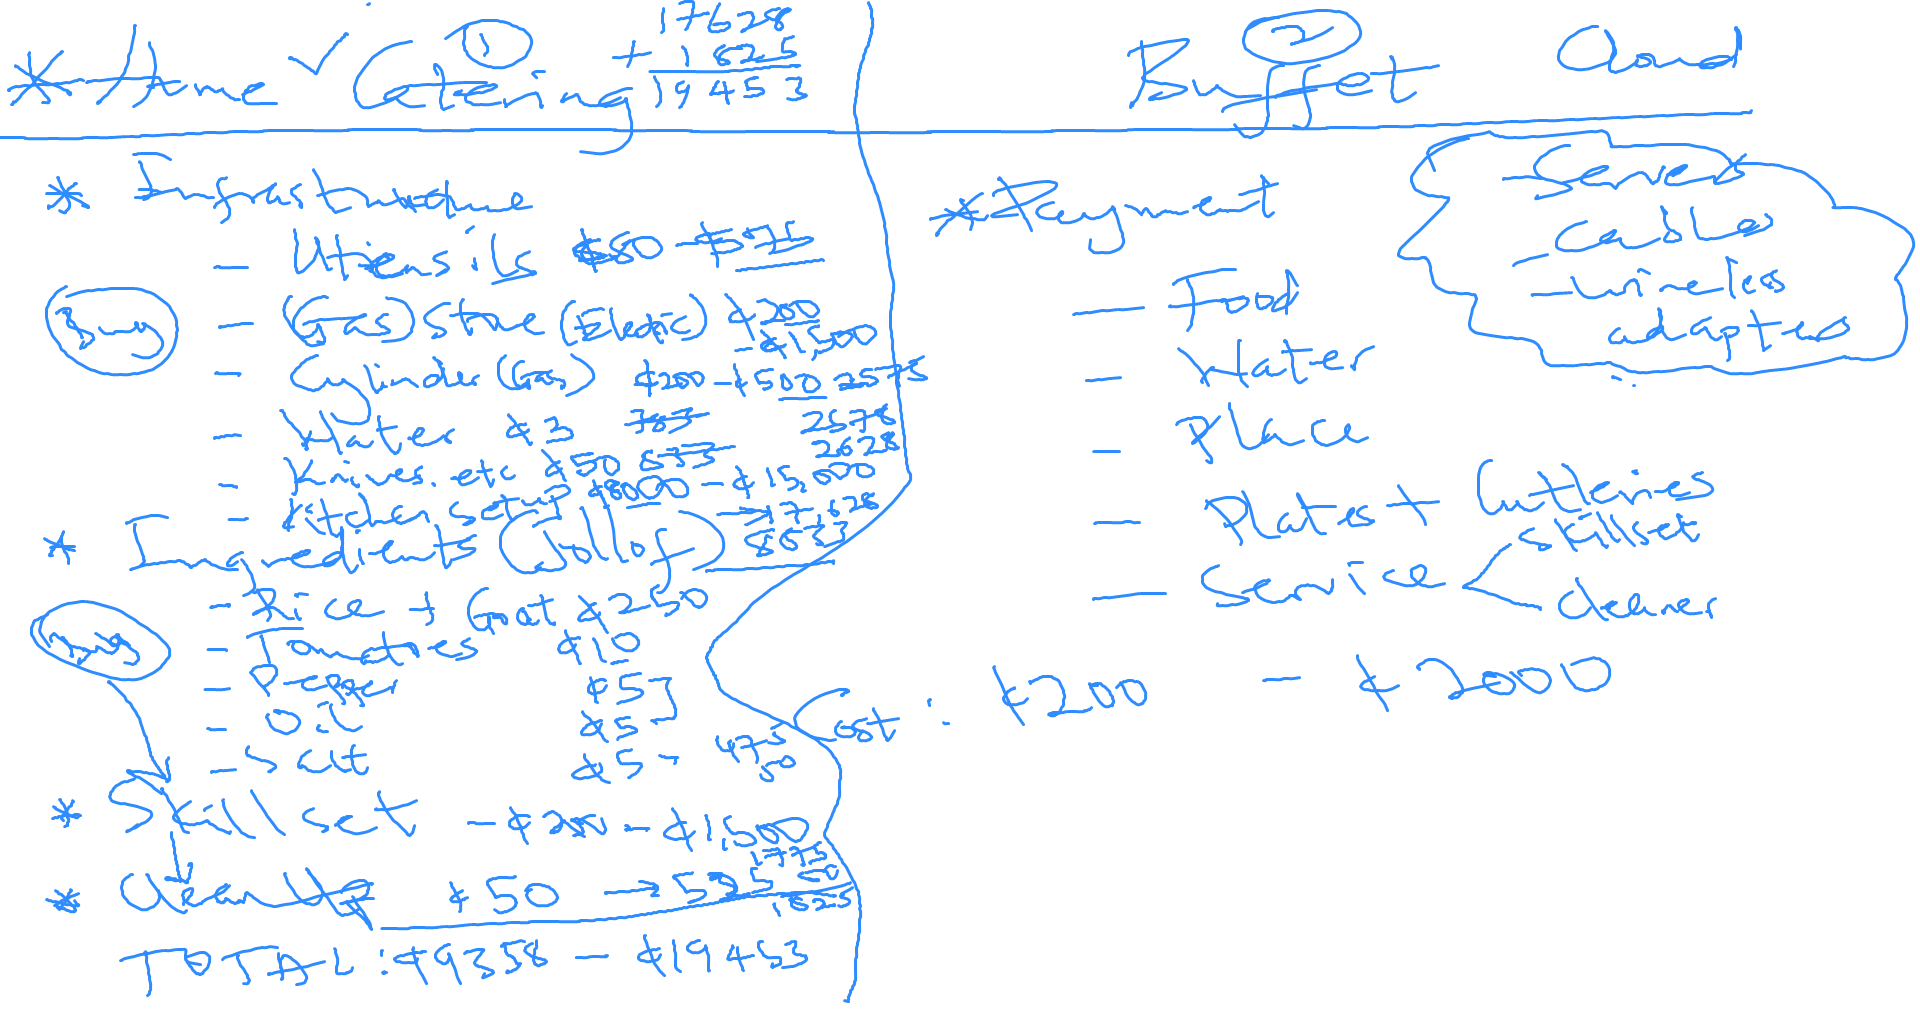 * Home ✓ Catering ① 17628
+ 1825
19453
* Infrastructure
- Utensils ¢80 - ¢575
Buy
- (Gas) Stove (Electric) ¢200
- ¢1,500
- Cylinder (Gas) ¢200 - ¢500 2575
- Water ¢3 783 2578
- Knives. etc ¢50 833 2628
- Kitchen setup ¢8000 - ¢15,000
→ 17,628
* Ingredients (Jollof) 8833
- Rice + Goat ¢250
Buy
- Tomatoes ¢10
- Pepper ¢5
- Oil ¢5
- Salt ¢5 - 475
50
* Skill set - ¢200 - ¢1,500
1775
* Clean Up ¢50 → 525 50
1825
TOTAL : ¢9358 - ¢19453
② Buffet
* Payment
- Food
- Water
- Place
- Plates + Cutleries
- Service < skillset
cleaner
Cost : ¢200 - ¢2000
Cloud
- Servers
- Cables
- wireless
adapters